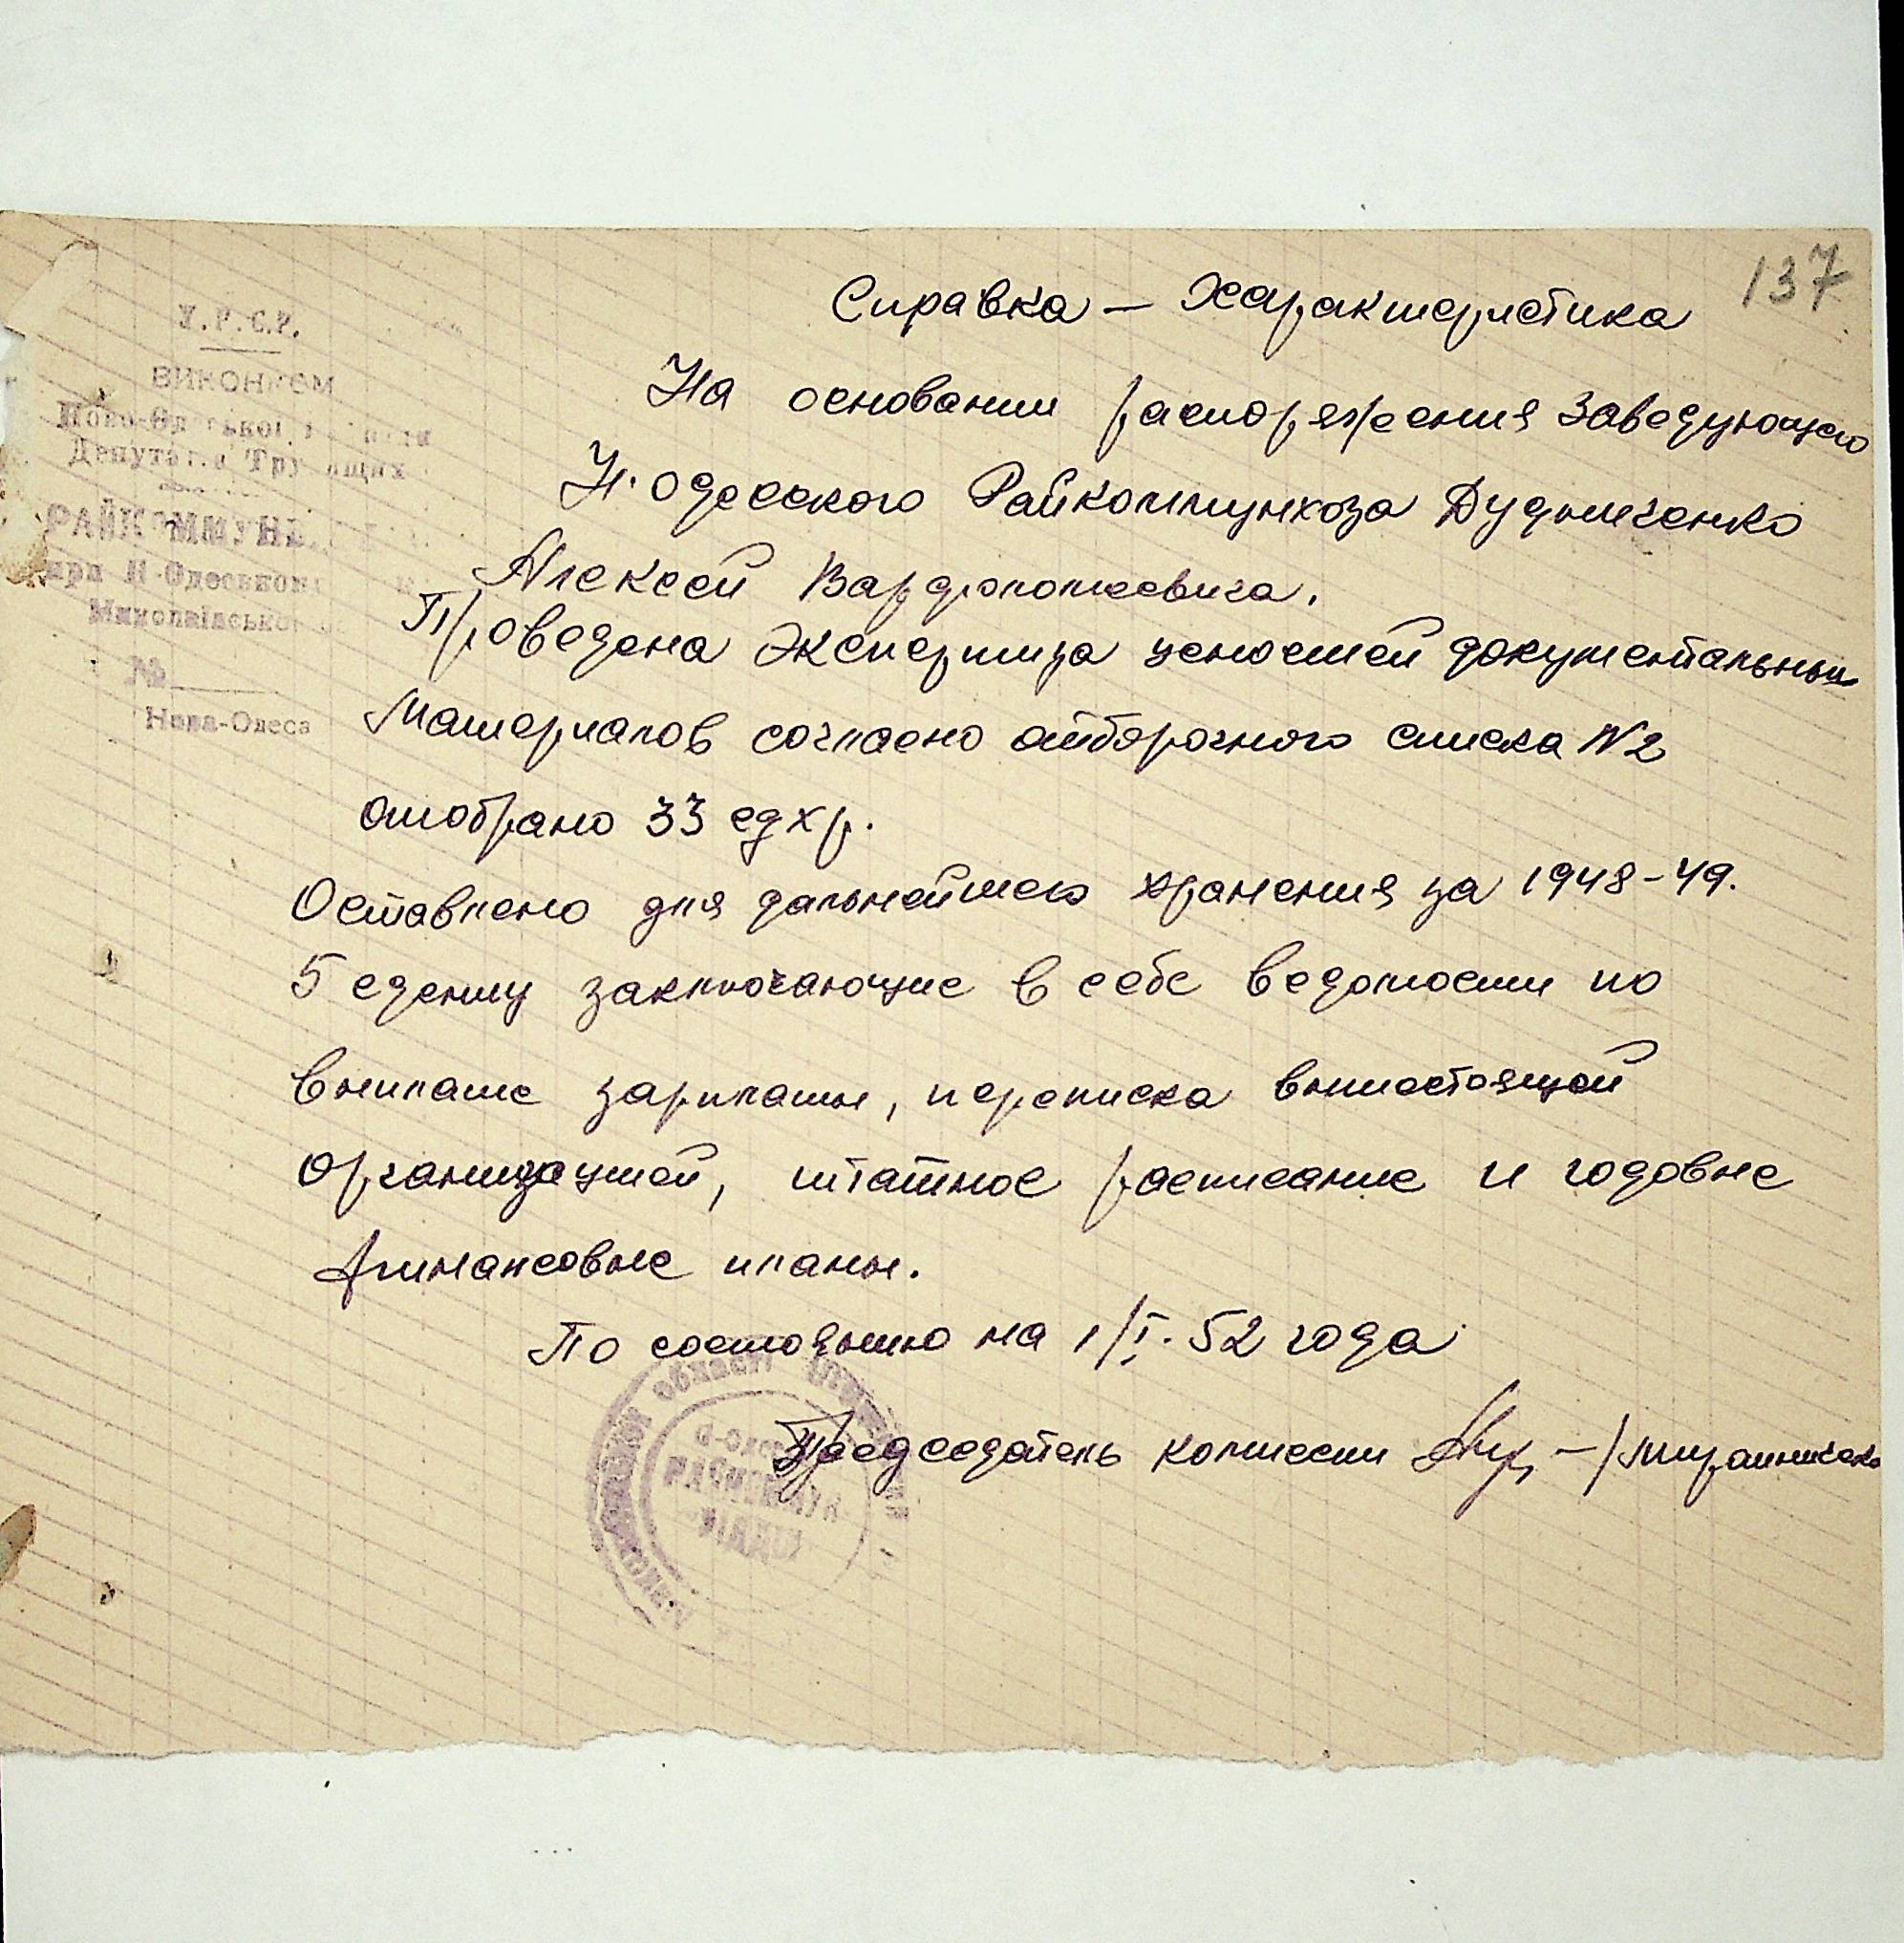 137
У.Р.С.Р.
ВИКОНКОМ
Депутатів Трудящих
№
Нова-Одеса
Справка — Характеристика
На основании распоряжения Заведующего
Н. Одесского Райкоммунхоза Дудниченко
Алексей Варфоломеевича.
Проведена Экспертиза ценостей документальных
Материалов согласно отборочного списка №2
отобрано 33 ед хр.
Оставлено для дальнейшего хранения за 1948-49.
5 едениц заключающие в себе ведомости по
выплате зарплаты, переписка вышестоящей
организацией, штатное расписание и годовые
финансовые планы.
По состоянию на 1/I. 52 года
Председатель комиссии